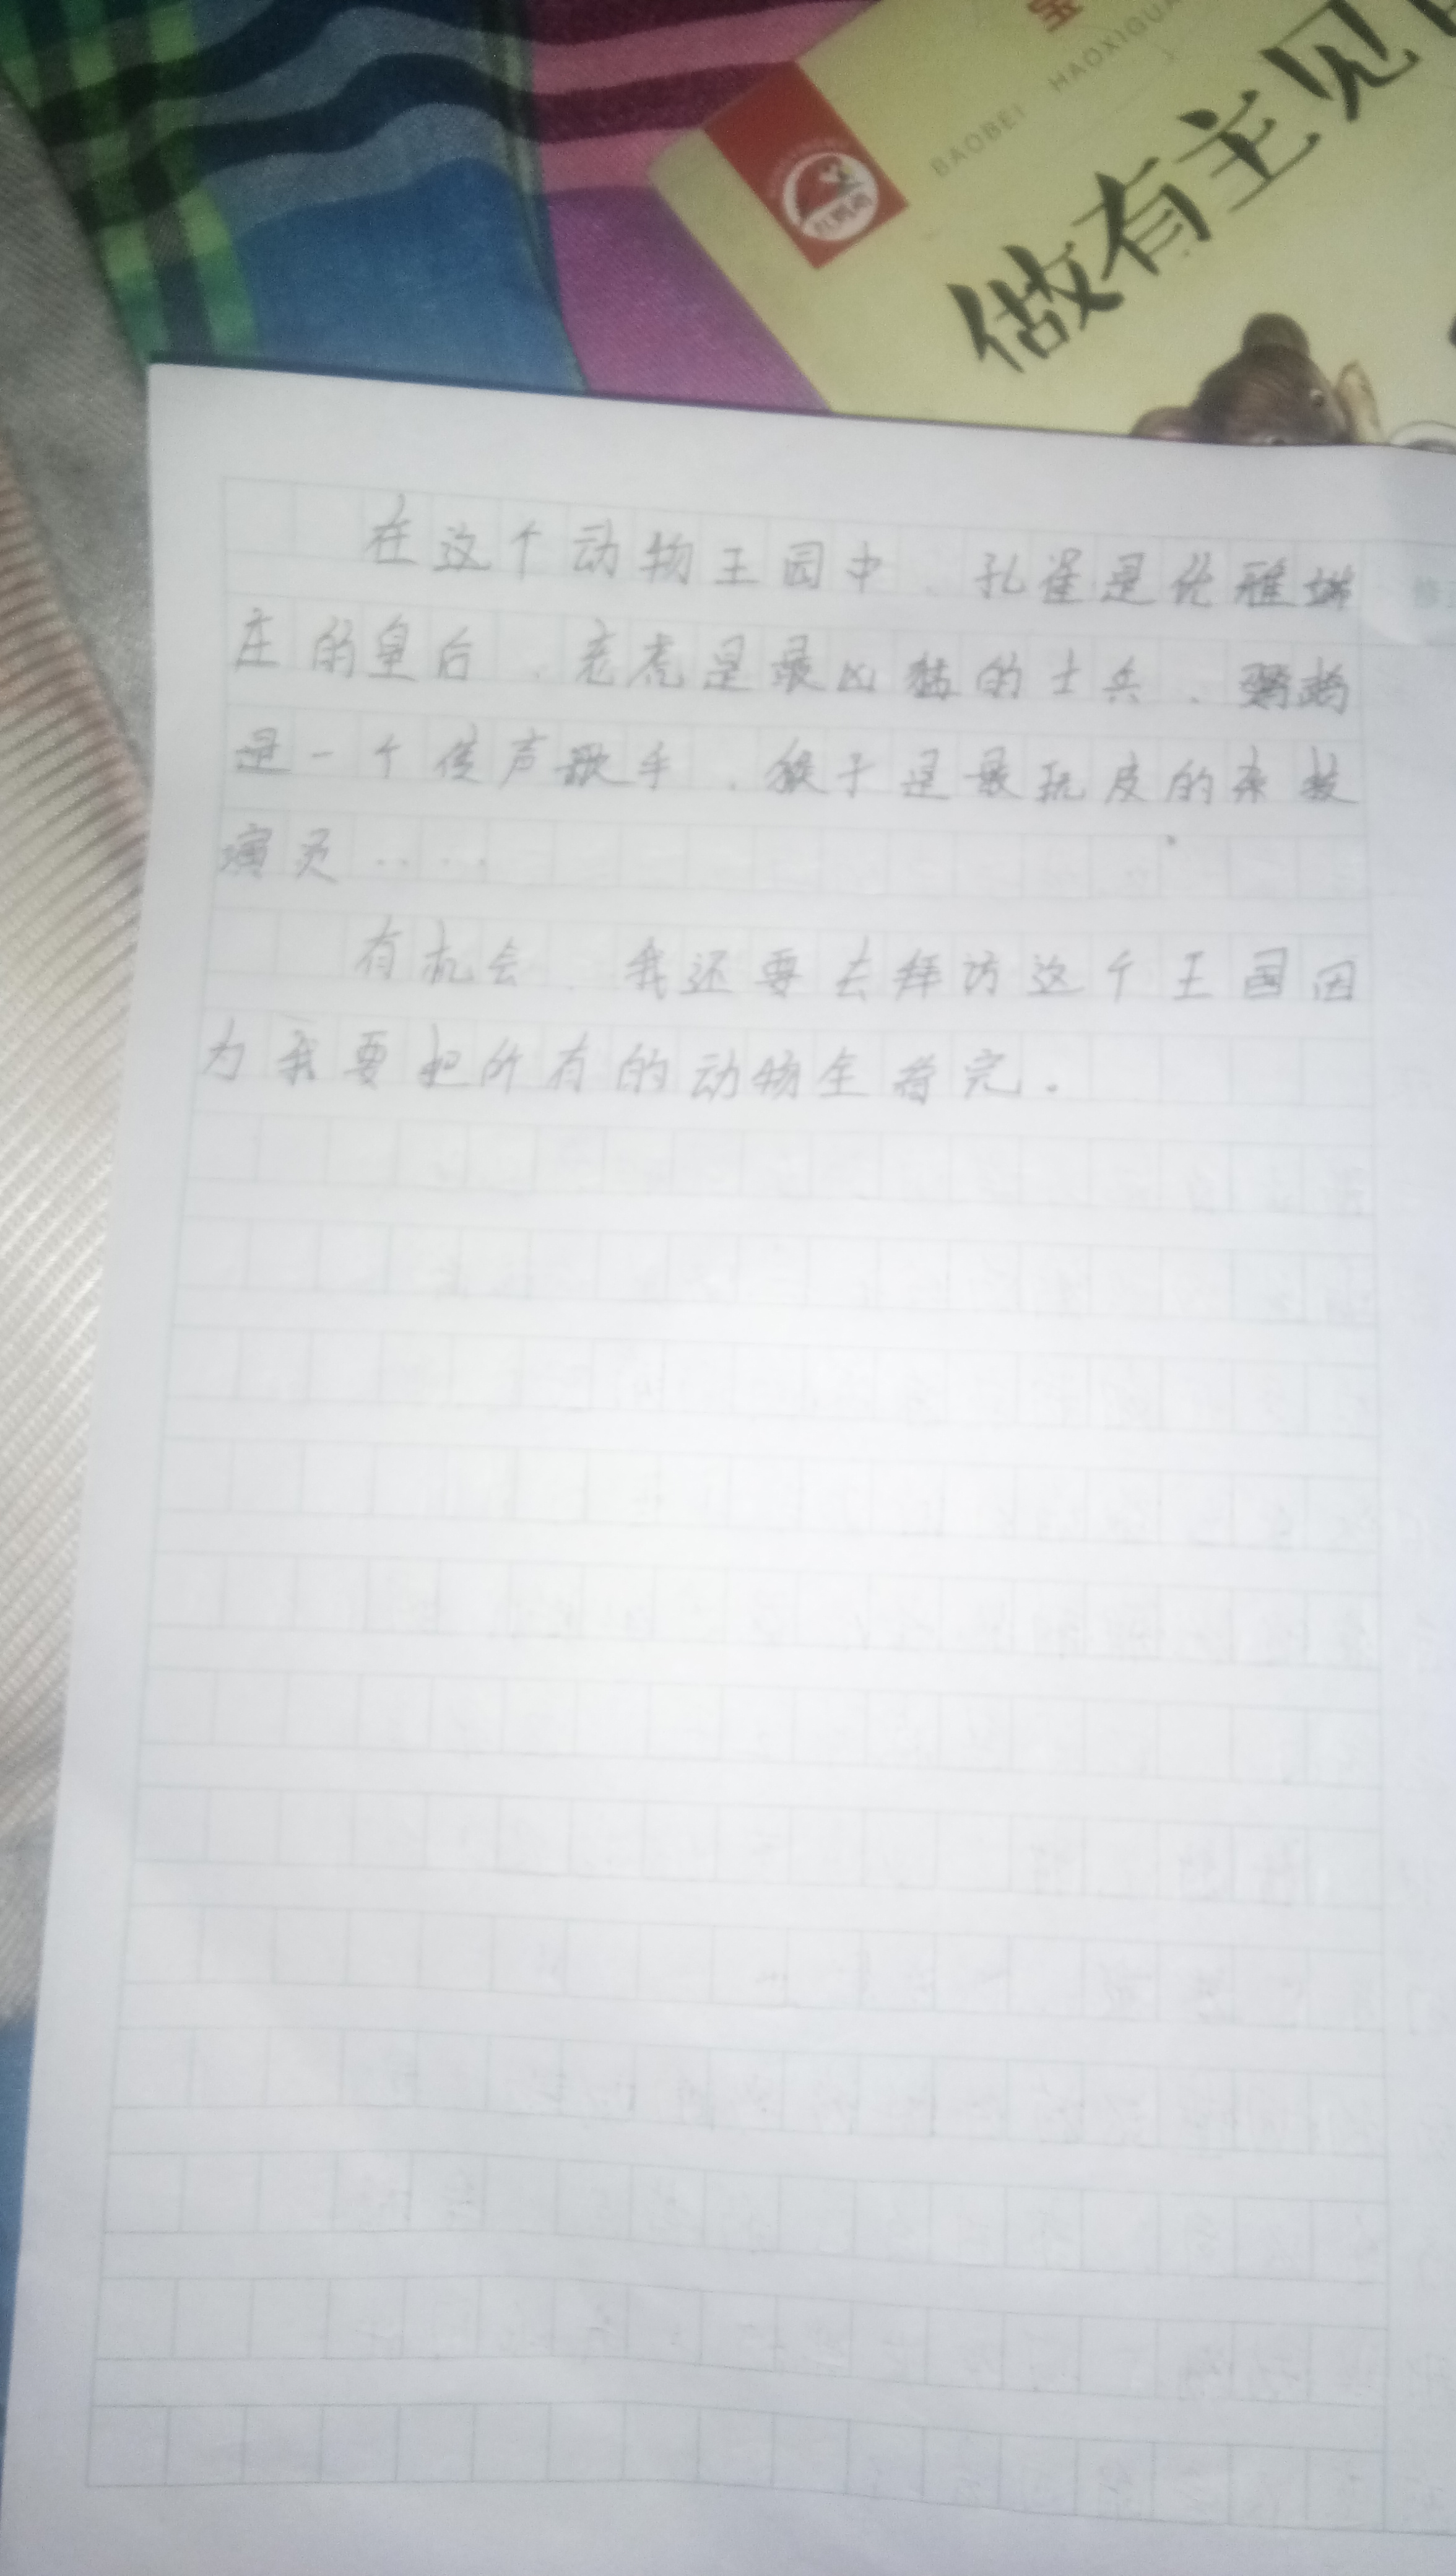 BAOBEI HAOXIGUA
做有主见
在这个动物王园中、孔雀是优雅端
庄的皇后、老虎是最凶猛的士兵、鹦鹉
是一个传声歌手、猴子是最玩皮的杂技
演员……
有机会、我还要去拜访这个王国因
为我要把所有的动物全看完.